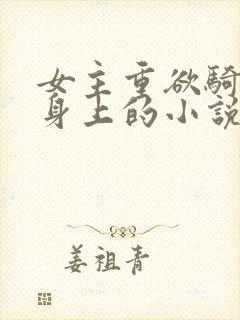 女主重欲騎
身上的小說
姜祖青